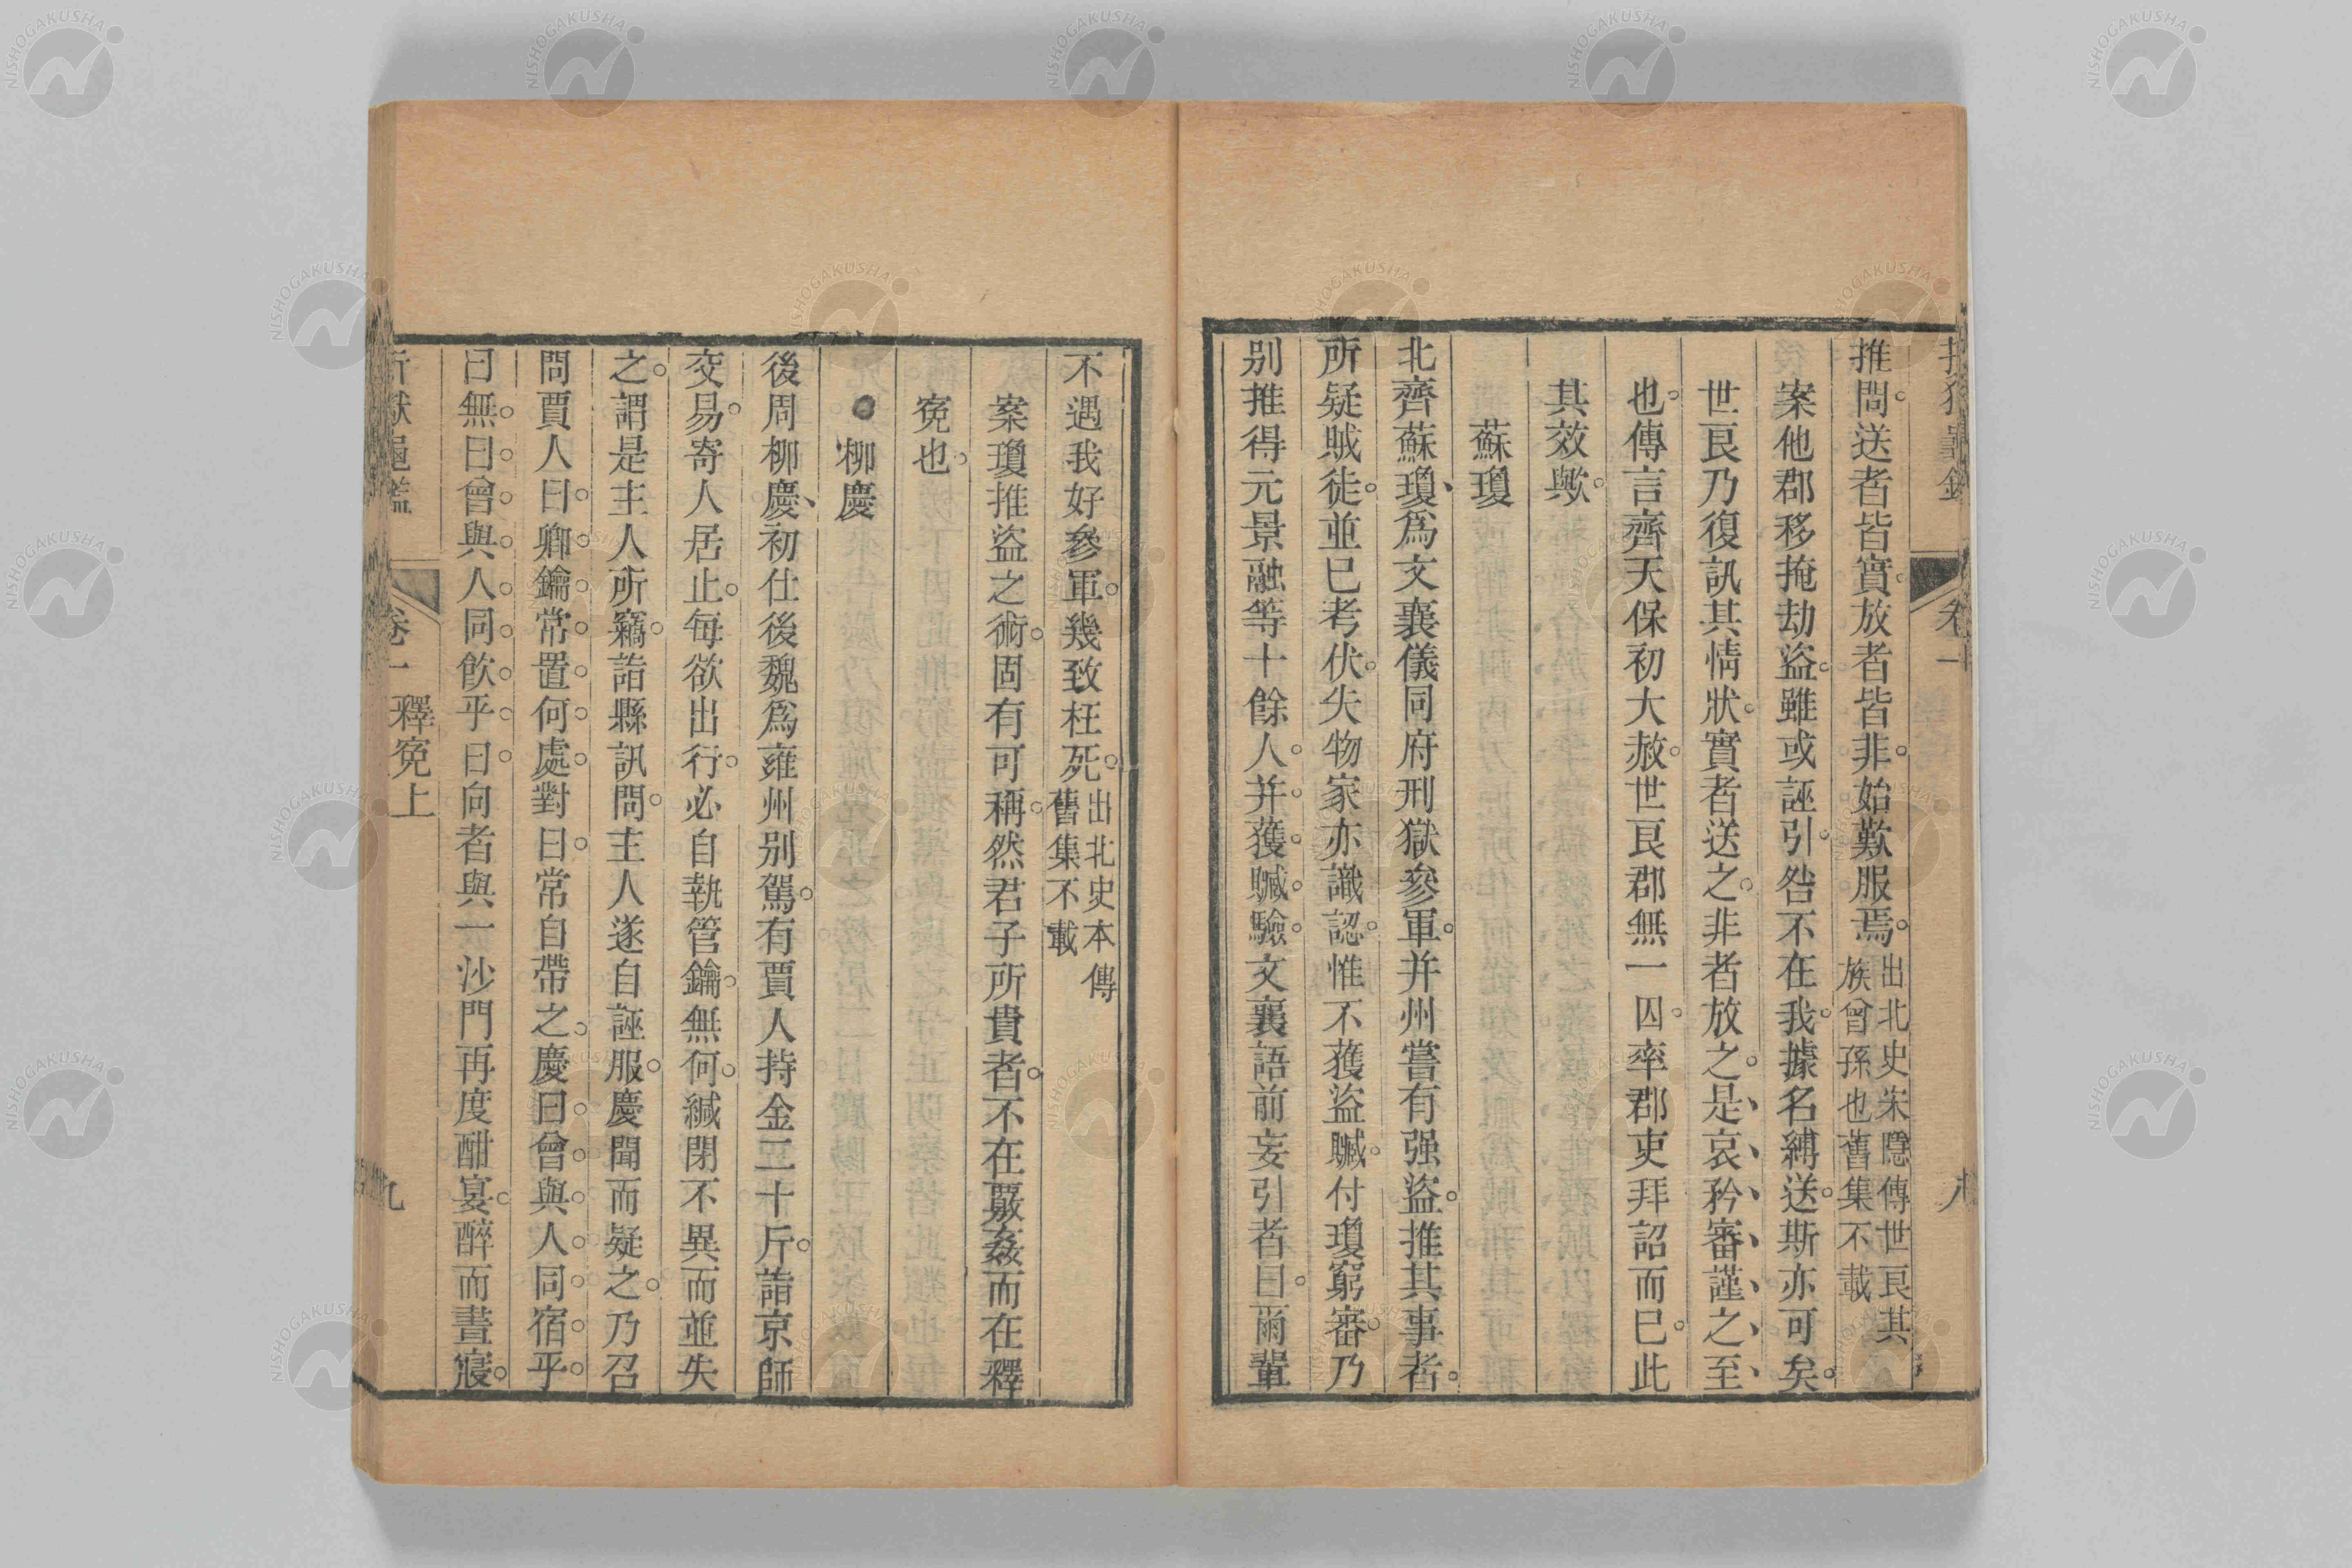 推問送者皆實放者皆非始歎服焉出北史宋隱傳世良其族曾孫也舊集不載
案他郡移掩劫盜雖或誣引咎不在我據名縛送斯亦可矣
世良乃復訊其情狀實者送之非者放之是哀矜審謹之至
也傳言齊天保初大赦世良郡無一囚率郡吏拜詔而已此
其效歟
蘇瓊
北齊蘇瓊爲文襄儀同府刑獄參軍并州嘗有强盜推其事者
所疑賊徒並已考伏失物家亦識認惟不獲盜贓付瓊窮審乃
别推得元景融等十餘人并獲贓驗文襄語前妄引者曰爾輩
卷一
不遇我好參軍幾致枉死出北史本傳舊集不載
案瓊推盜之術固有可稱然君子所貴者不在覈姦而在釋
寃也
柳慶
後周柳慶初仕後魏爲雍州别駕有賈人持金二十斤詣京師
交易寄人居止每欲出行必自執管鑰無何緘閉不異而並失
之謂是主人所竊詣縣訊問主人遂自誣服慶聞而疑之乃召
問賈人曰卿鑰常置何處對曰常自帶之慶曰曾與人同宿乎
曰無曰曾與人同飲乎曰向者與一沙門再度酣宴醉而晝寢
折獄龜鑑 卷一 釋寃上 九
NISHOGAKUSHA